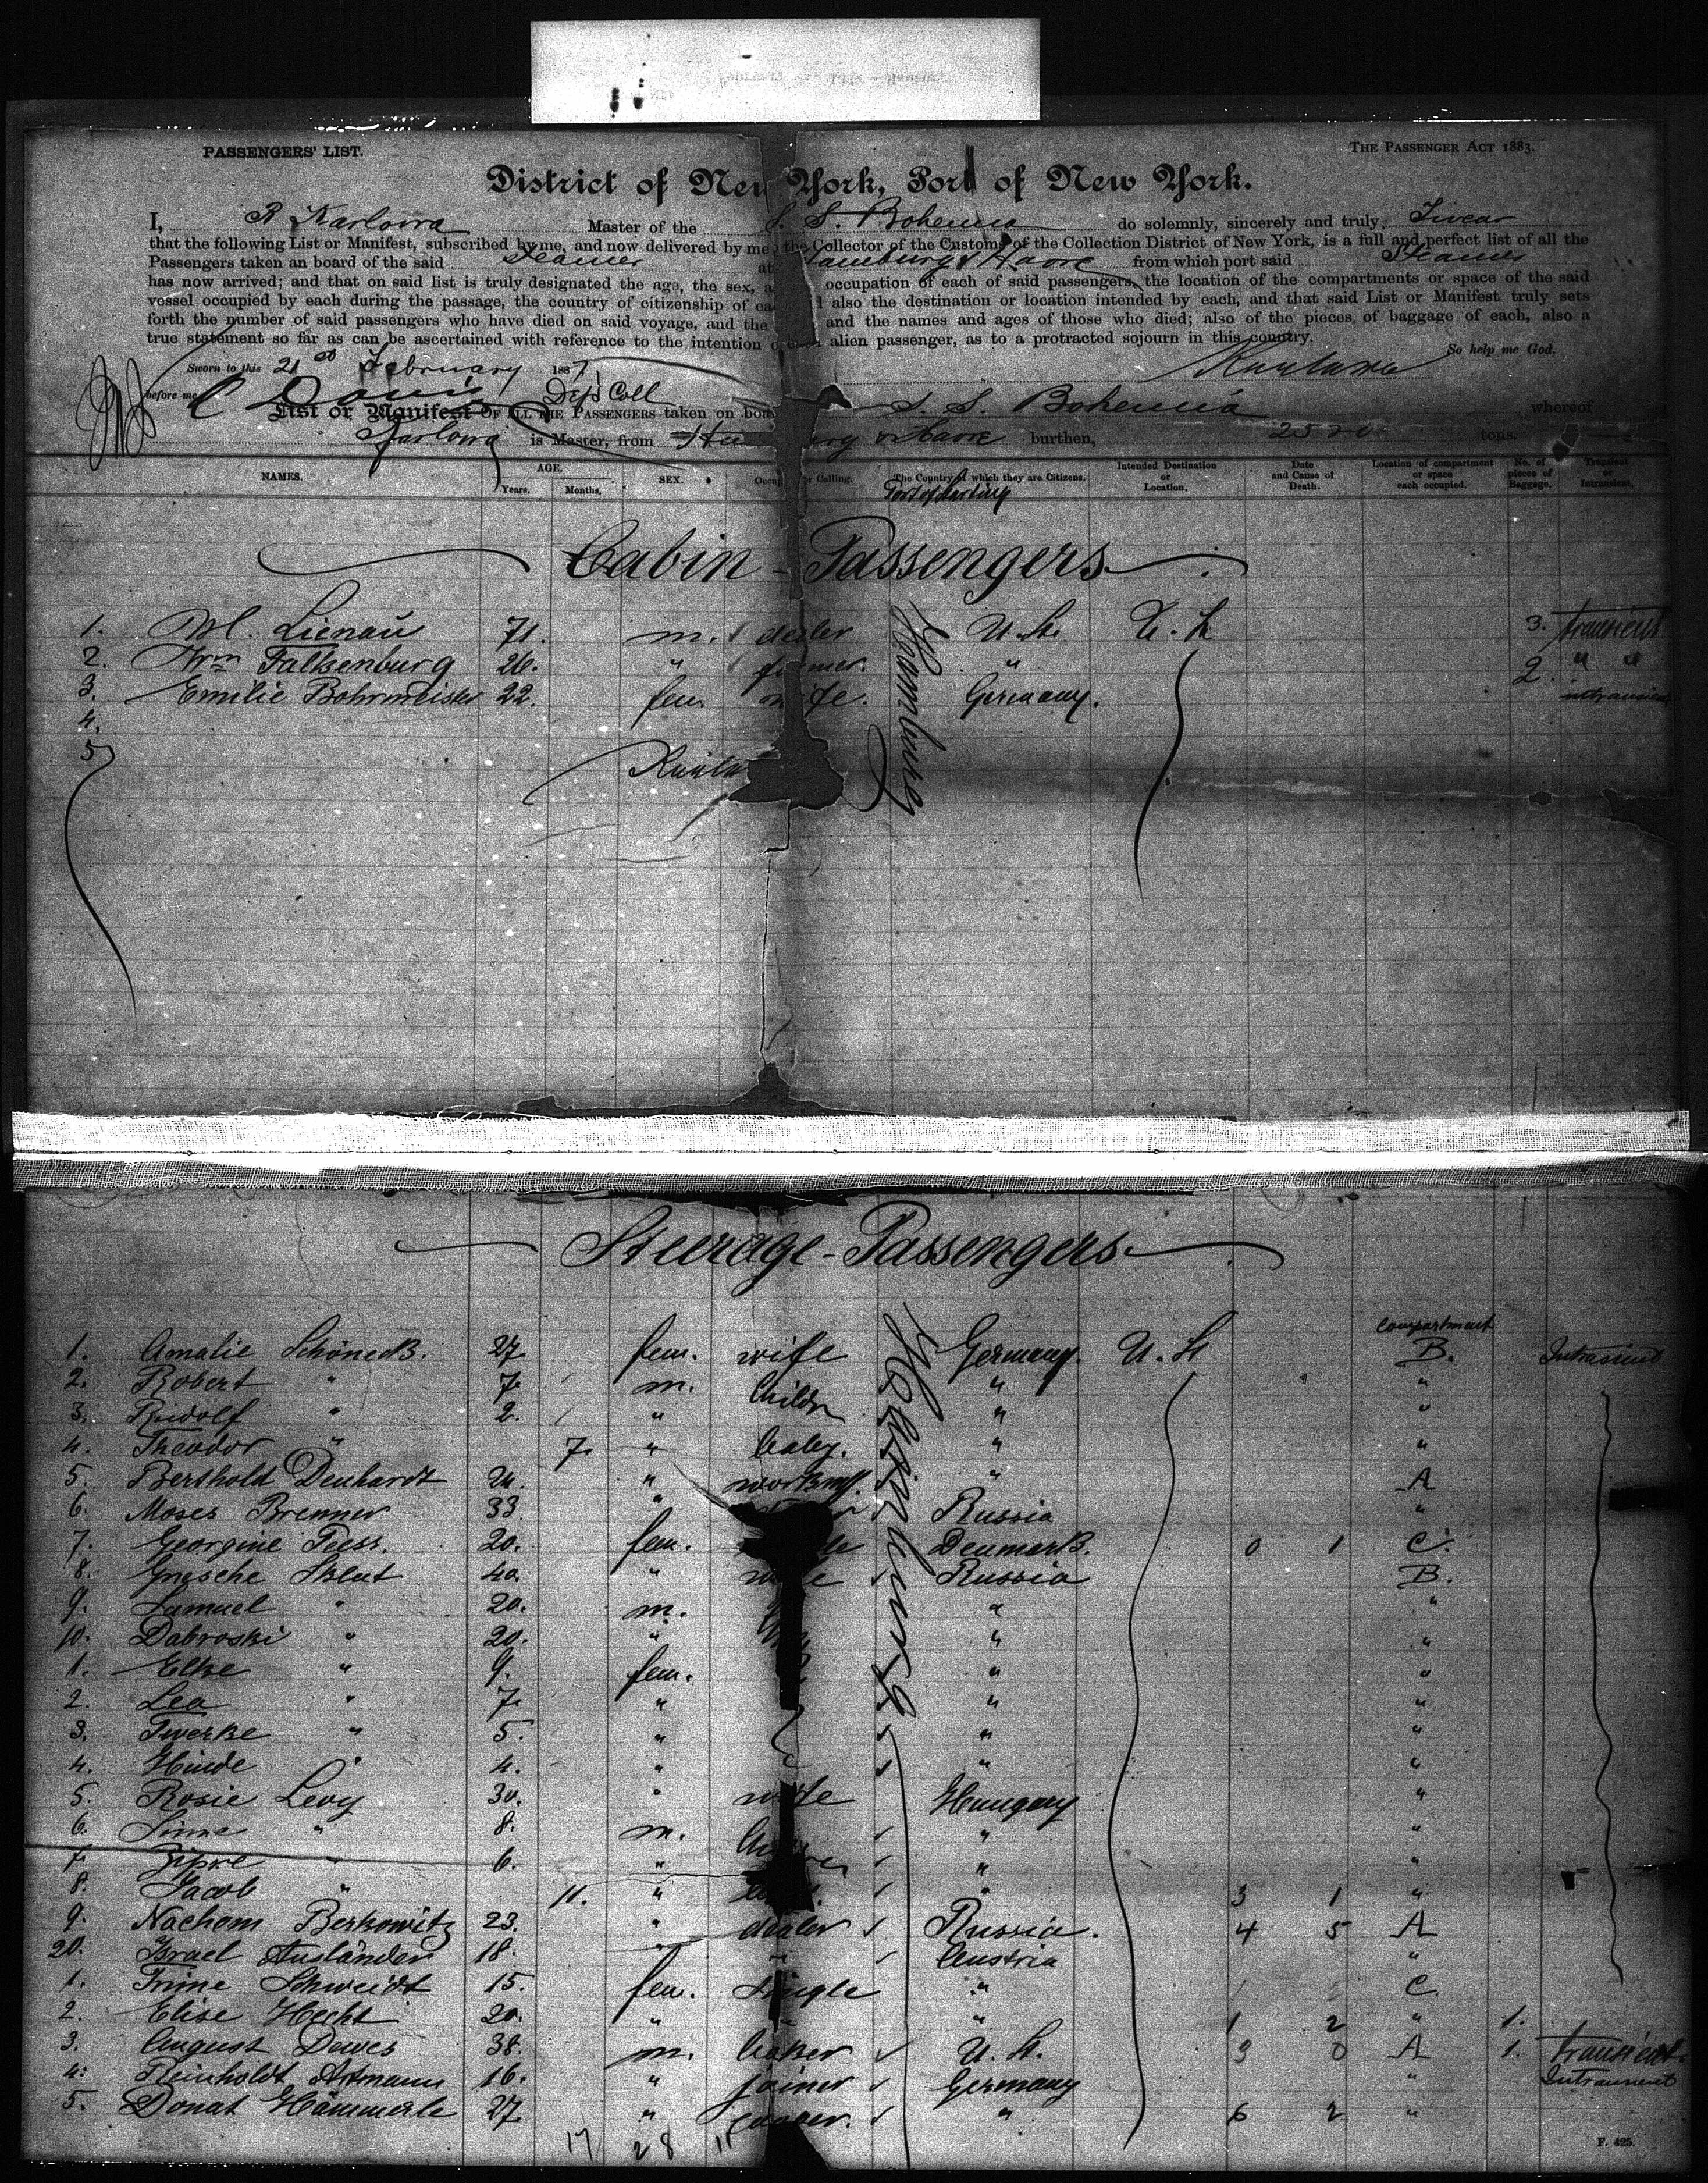 PASSENGERS' LIST.
THE PASSENGER ACT 1883.
District of New York, Port of New York.
I, R Karlowa Master of the S. S. Bohemia do solemnly, sincerely and truly Swear
that the following List or Manifest, subscribed by me, and now delivered by me the Collector of the Customs of the Collection District of New York, is a full and perfect list of all the
Passengers taken an board of the said Steamer at Hamburg & Havre from which port said Steamer
has now arrived; and that on said list is truly designated the age, the sex, a occupation of each of said passengers, the location of the compartments or space of the said
vessel occupied by each during the passage, the country of citizenship of ea also the destination or location intended by each, and that said List or Manifest truly sets
forth the number of said passengers who have died on said voyage, and the and the names and ages of those who died; also of the pieces of baggage of each, also a
true statement so far as can be ascertained with reference to the intention alien passenger, as to a protracted sojourn in this country.
So help me God.
Sworn to this 21st February 1887
Karlowa
before me C Davis Dep Coll
List or Manifest OF ALL THE PASSENGERS taken on boa S. S. Bohemia whereof
Karlowa is Master, from Hamburg & Havre burthen, 2520 tons.
NAMES. AGE. Years. Months. SEX. Occup or Calling. The Country of which they are Citizens. Intended Destination or Location. Date and Cause of Death. Location of compartment or space each occupied. No. of pieces of Baggage. Transient or Intransient.
Cabin - Passengers.
1. M. Lienau 71. m. dealer U. St. U. St 3. transient
2. Wm Falkenburg 26. " farmer. " 2. " "
3. Emilie Bohrmeister 22. fem. wife. Germany. intransient
4.
5
Hamburg
Steerage - Passengers.
compartment
1. Amalie Schöneck. 27. fem. wife Germany. U. St B. Intransient
2. Robert " 7. m. Childn " "
3. Rudolf " 2. " " "
4. Theodor " 7. " baby. " "
5. Bershold Denhardt " " A
6. Moses Brenner 33. " Russia "
7. Georgine Fess. 20. fem. Denmark. 0 1 C.
8. 40. " wife Russia B.
9. Samuel " 20. m. " "
10. Dabroski " 20. " " "
1. Elke " 9. fem. " "
2. Lea " 7. " " "
3. Twerke " 5. " " "
4. Hinde " 4. " " "
5. Rosie Levy 30. " wife Hungary "
6. " 8. m. " "
7. " 6. " " "
8. Jacob " 11. " " 3 1 "
9. Nachem Berkowitz 23. " dealer Russia. 4 5 A
20. Israel Ausländer 18. " Austria "
1. Schweidt 15. fem. single " C.
2. Elise Hecht 20. " " " 1 2 " 1.
3. August Dewes 38. m. baker U. St. 3 0 A 1. transient
4. Reinholdt Artmann 16. " joiner Germany " Intransient
5. Donat Hämmerle 27. " " 6 2 "
Hamburg
17 28 11
F. 425.